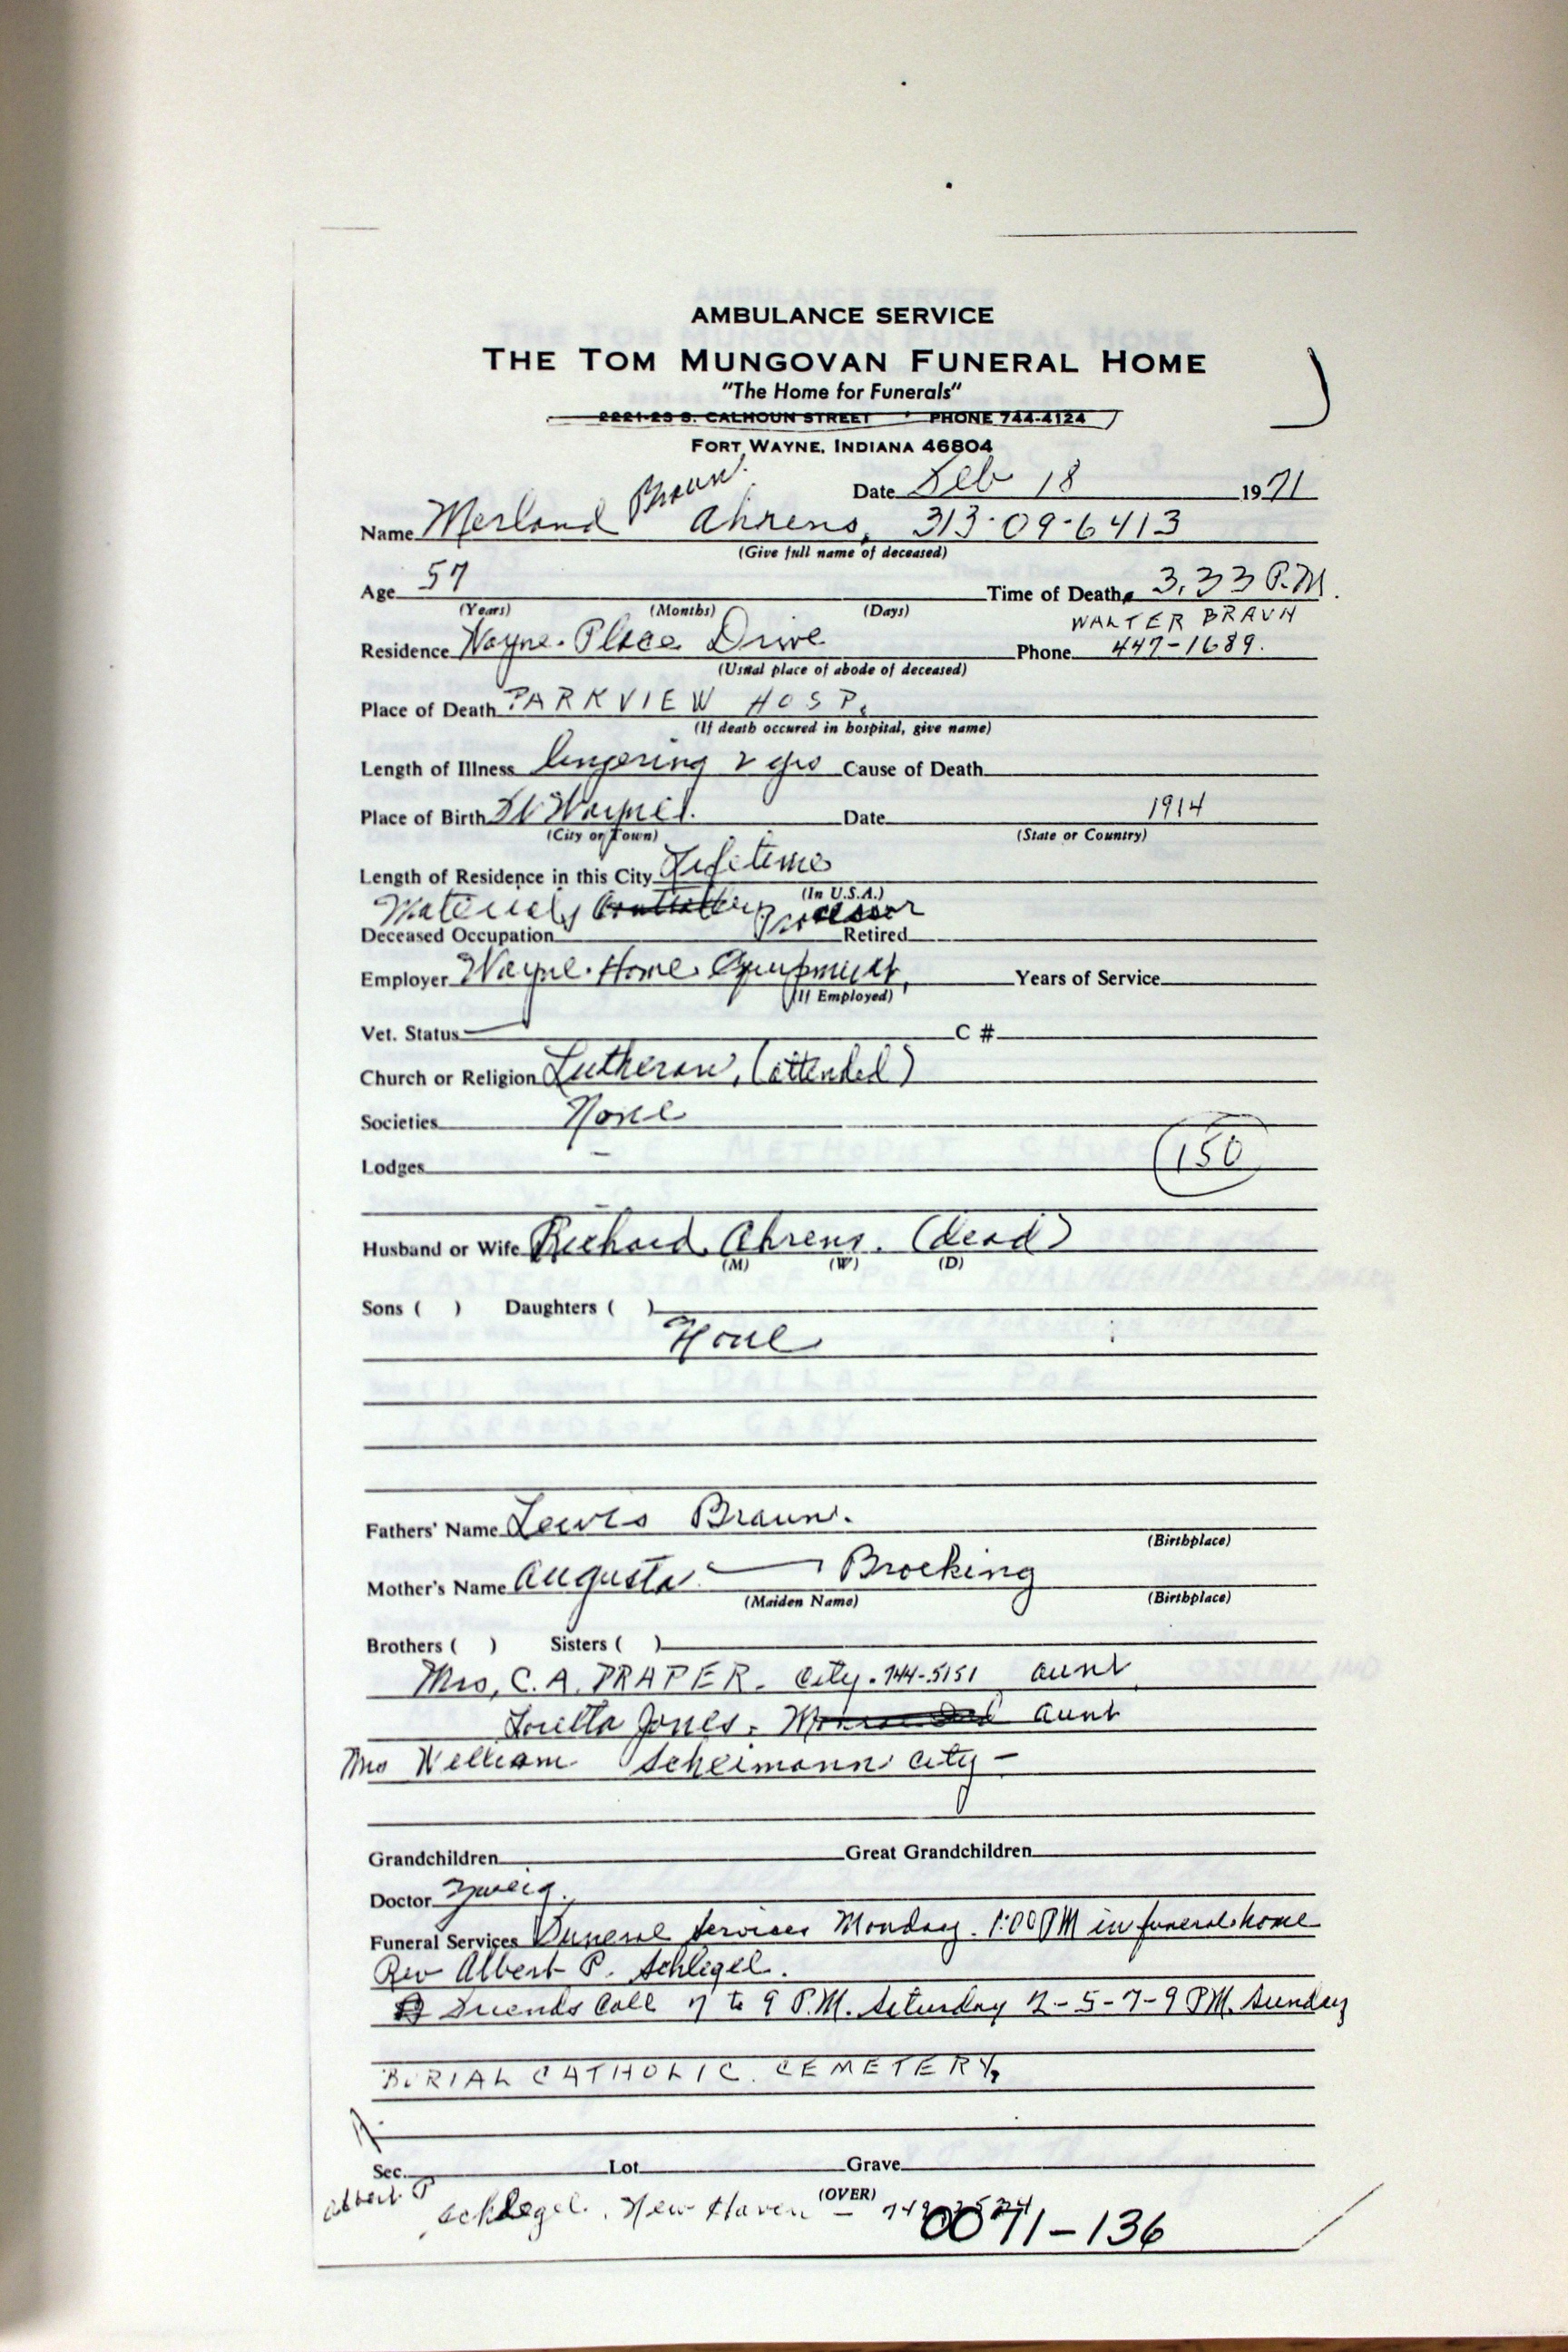 AMBULANCE SERVICE
THE TOM MUNGOVAN FUNERAL HOME
"The Home for Funerals"
2221-23 S. CALHOUN STREET • PHONE 744-4124
FORT WAYNE, INDIANA 46804
Date Feb 18 1971
Braun
Name Merland Ahrens, 313-09-6413
(Give full name of deceased)
Age 57 Time of Death 3,33 P.M.
(Years) (Months) (Days)
WALTER BRAUN
Residence Wayne Place Drive Phone 447-1689.
(Usual place of abode of deceased)
Place of Death PARKVIEW HOSP.
(If death occured in hospital, give name)
Length of Illness lingering 2 yrs Cause of Death
Place of Birth Ft Wayne Date 1914
(City or Town) (State or Country)
Length of Residence in this City Lifetime
(In U.S.A.)
Materials Processor
Deceased Occupation Retired
Employer Wayne Home Equipment, Years of Service
(If Employed)
Vet. Status C #
Church or Religion Lutheran, (attended)
Societies None
Lodges — 150
Husband or Wife Richard Ahrens. (dead)
(M) (W) (D)
Sons ( ) Daughters ( )
None
Fathers' Name Lewis Braun.
(Birthplace)
Mother's Name Augusta — Brocking
(Maiden Name) (Birthplace)
Brothers ( ) Sisters ( )
Mrs, C.A. DRAPER. City. 744-5151 aunt
Loretta Jones. aunt
Mrs William Scheimann city —
Grandchildren Great Grandchildren
Doctor Zweig.
Funeral Services Funeral services Monday. 1:00 PM in funeral home
Rev Albert P. Schlegel.
Friends Call 7 to 9 P.M. Saturday 2-5-7-9 PM. Sunday
BURIAL CATHOLIC CEMETERY,
Sec. Lot Grave
(OVER)
Albert P Schlegel. New Haven —
0071-136